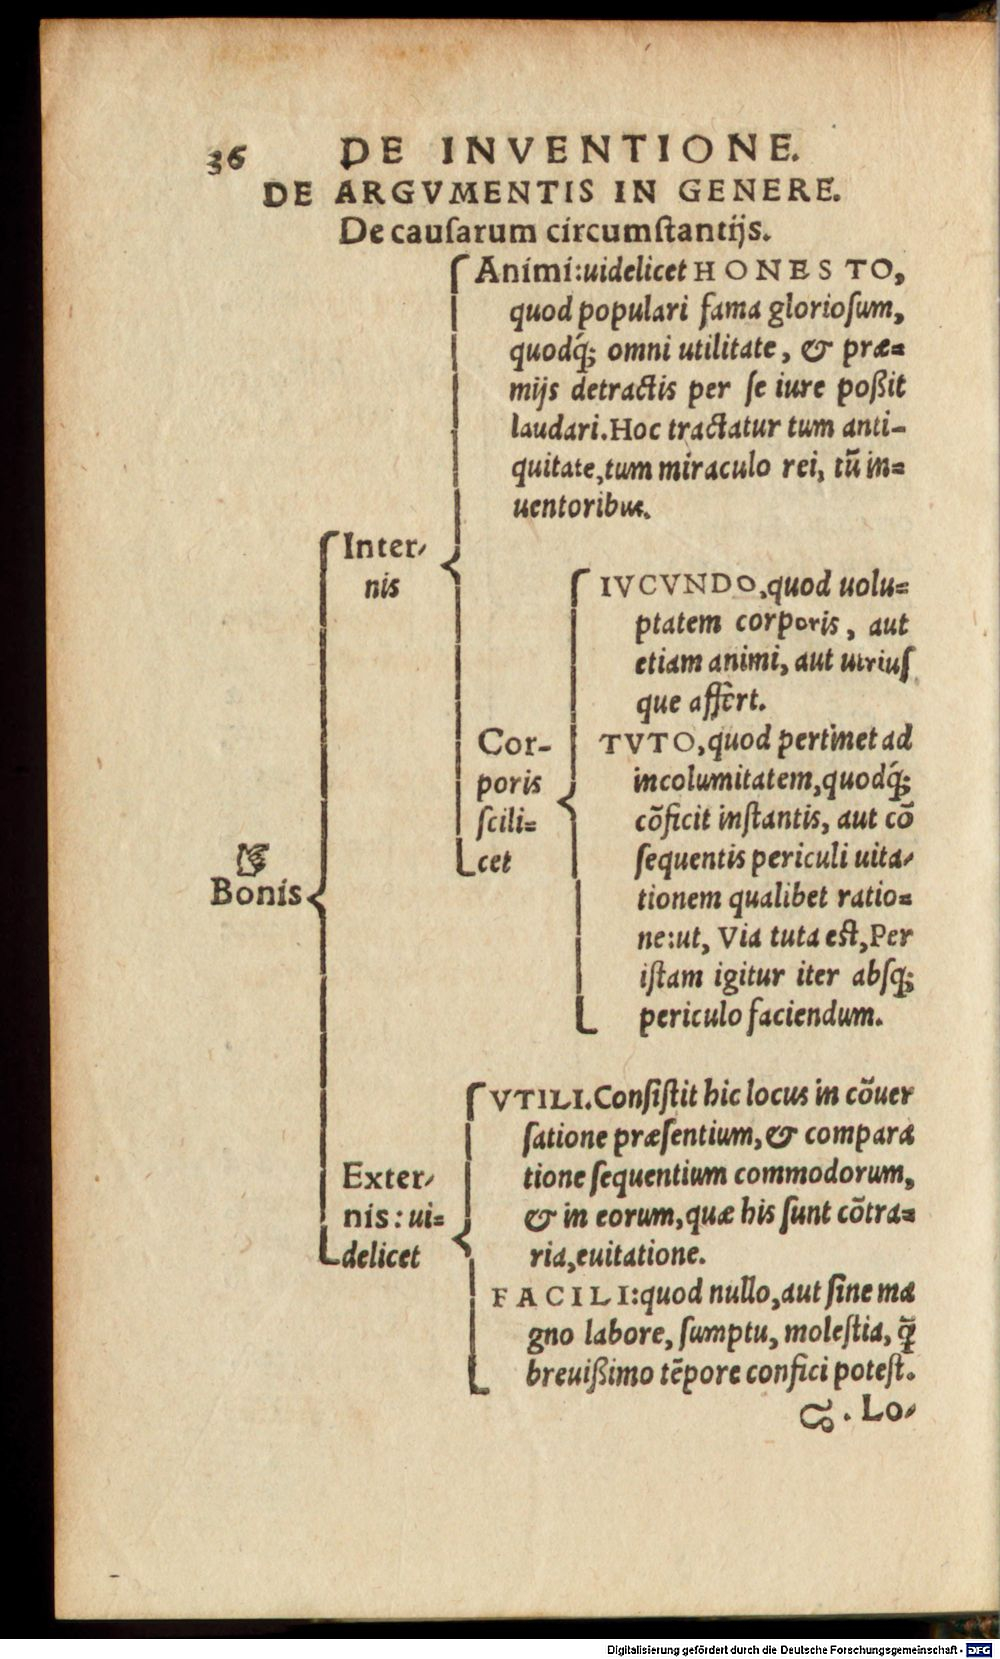 36 DE INVENTIONE.
DE ARGVMENTIS IN GENERE.
De cauſarum circumſtantijs.
Animi: uidelicet HONESTO,
quod populari fama glorioſum,
quodq́; omni utilitate, & præ=
mijs detractis per ſe iure poßit
laudari. Hoc tractatur tum anti-
quitate, tum miraculo rei, tū in=
uentoribus.
Inter-
nis
IVCVNDO, quod uolu=
ptatem corporis, aut
etiam animi, aut utriuſ
que affert.
Cor-
poris
ſcili=
cet
TVTO, quod pertinet ad
incolumitatem, quodq́;
cōficit inſtantis, aut cō
ſequentis periculi uita-
tionem qualibet ratio=
ne: ut, Via tuta eſt, Per
iſtam igitur iter abſq;
periculo faciendum.
Bonis
Exter-
nis: ui=
delicet
VTILI. Conſiſtit hic locus in cōuer
ſatione præſentium, & compara
tione ſequentium commodorum,
& in eorum, quæ his ſunt cōtra=
ria, euitatione.
FACILI: quod nullo, aut ſine ma
gno labore, ſumptu, moleſtia, q̄
breuißimo tēpore confici poteſt.
Lo-
Digitalisierung gefördert durch die Deutsche Forschungsgemeinschaft - DFG